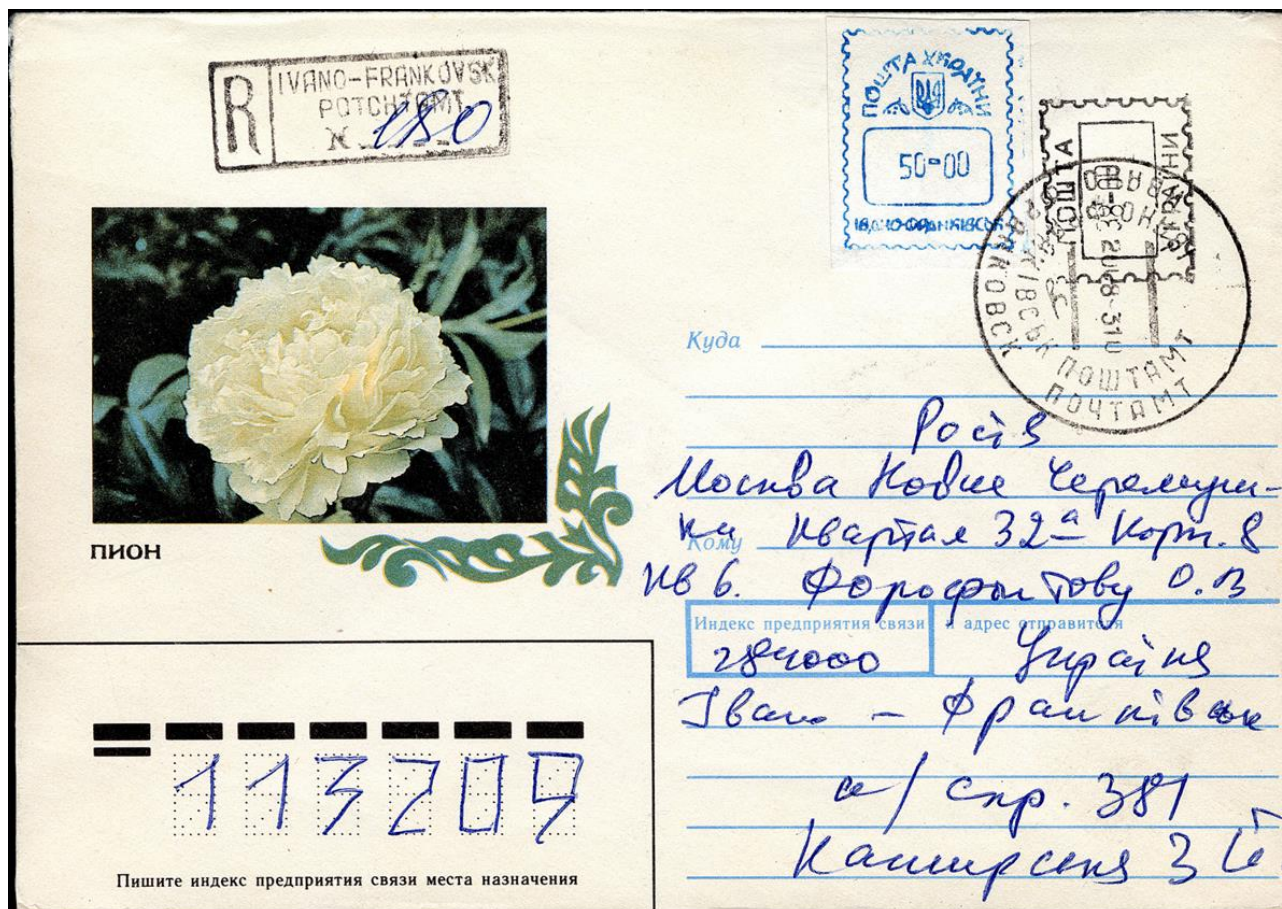 R
IVANO-FRANKOVSK
POTCHTAMT
N 180
ПОШТА УКРАЇНИ
50=00
ІВАНО-ФРАНКІВСЬК
ПОШТА
УКРАЇНИ
ФРАНКІВСЬК ПОШТАМТ
ФРАНКОВСК ПОЧТАМТ
ПИОН
Куда
Росія
Москва Новие Черемуш-
ки Квартал 32а Корп. 8
Кому
кв 6.
О.В
Индекс предприятия связи и адрес отправителя
284000 Україна
Івано - Франківськ
а/скр. 381
113209
Пишите индекс предприятия связи места назначения